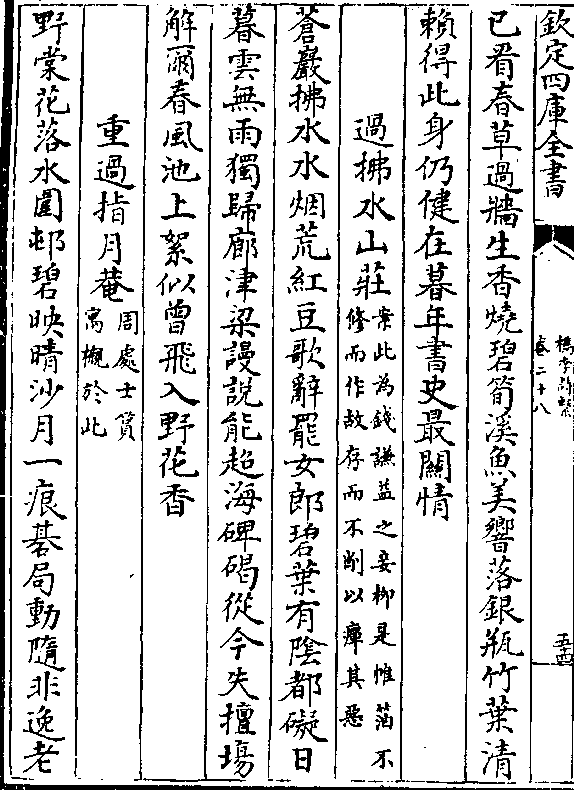 欽定四庫全書
檇李詩繫
卷二十八
五十四
已看春草過牆生香燒碧筍溪魚美響落銀瓶竹葉清
賴得此身仍健在暮年書史最關情
過拂水山莊案此為錢謙益之妾柳是帷薄不
修而作故存而不刪以癉其惡
蒼巖拂水水烟荒紅豆歌辭罷女郎碧葉有陰都礙日
暮雲無雨獨歸廊津梁謾說能超海碑碣從今失擅場
解爾春風池上絮似曾飛入野花香
重過指月菴周處士篔
寓櫬於此
野棠花落水圍邨碧映晴沙月一痕碁局動隨非逸老